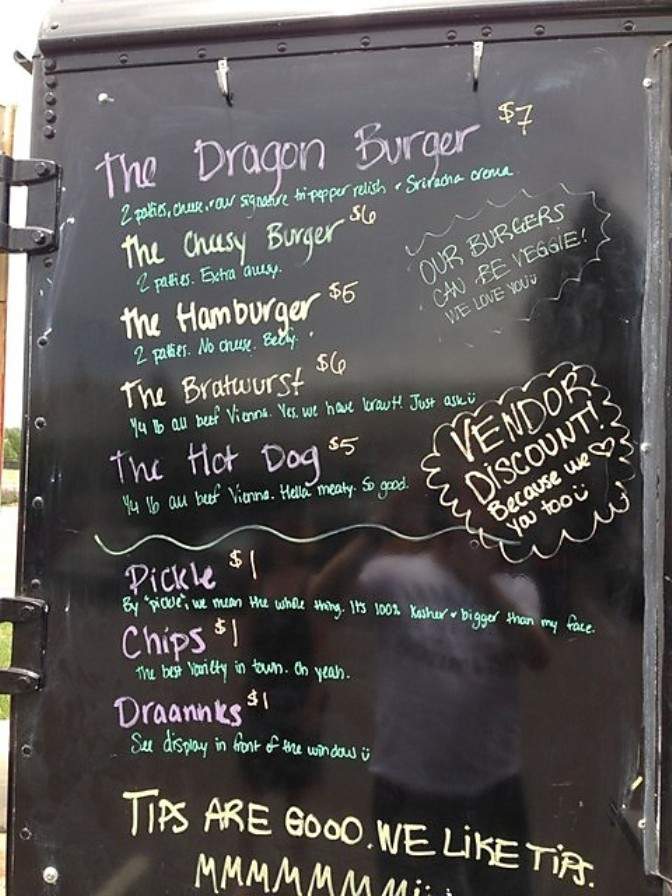 The Dragon Burger $7
2 patties, cheese, + our signature tri-pepper relish + Sriracha crema.
The Cheesy Burger $6
2 patties. Extra cheesy.
OUR BURGERS
CAN BE VEGGIE!
WE LOVE YOU
The Hamburger $5
2 patties. No cheese.
The Bratwurst $6
1/4 lb all beef Vienna. Yes, we have kraut! Just ask
The Hot Dog $5
1/4 lb all beef Vienna. Hella meaty. So good.
VENDOR
DISCOUNT!
Because we ♡
you too
Pickle $1
By "pickle", we mean the whole thing. It's 100% Kosher + bigger than my face.
Chips $1
The best variety in town. Oh yeah.
Draannks $1
See display in front of the window
TIPS ARE GOOD. WE LIKE TIPS.